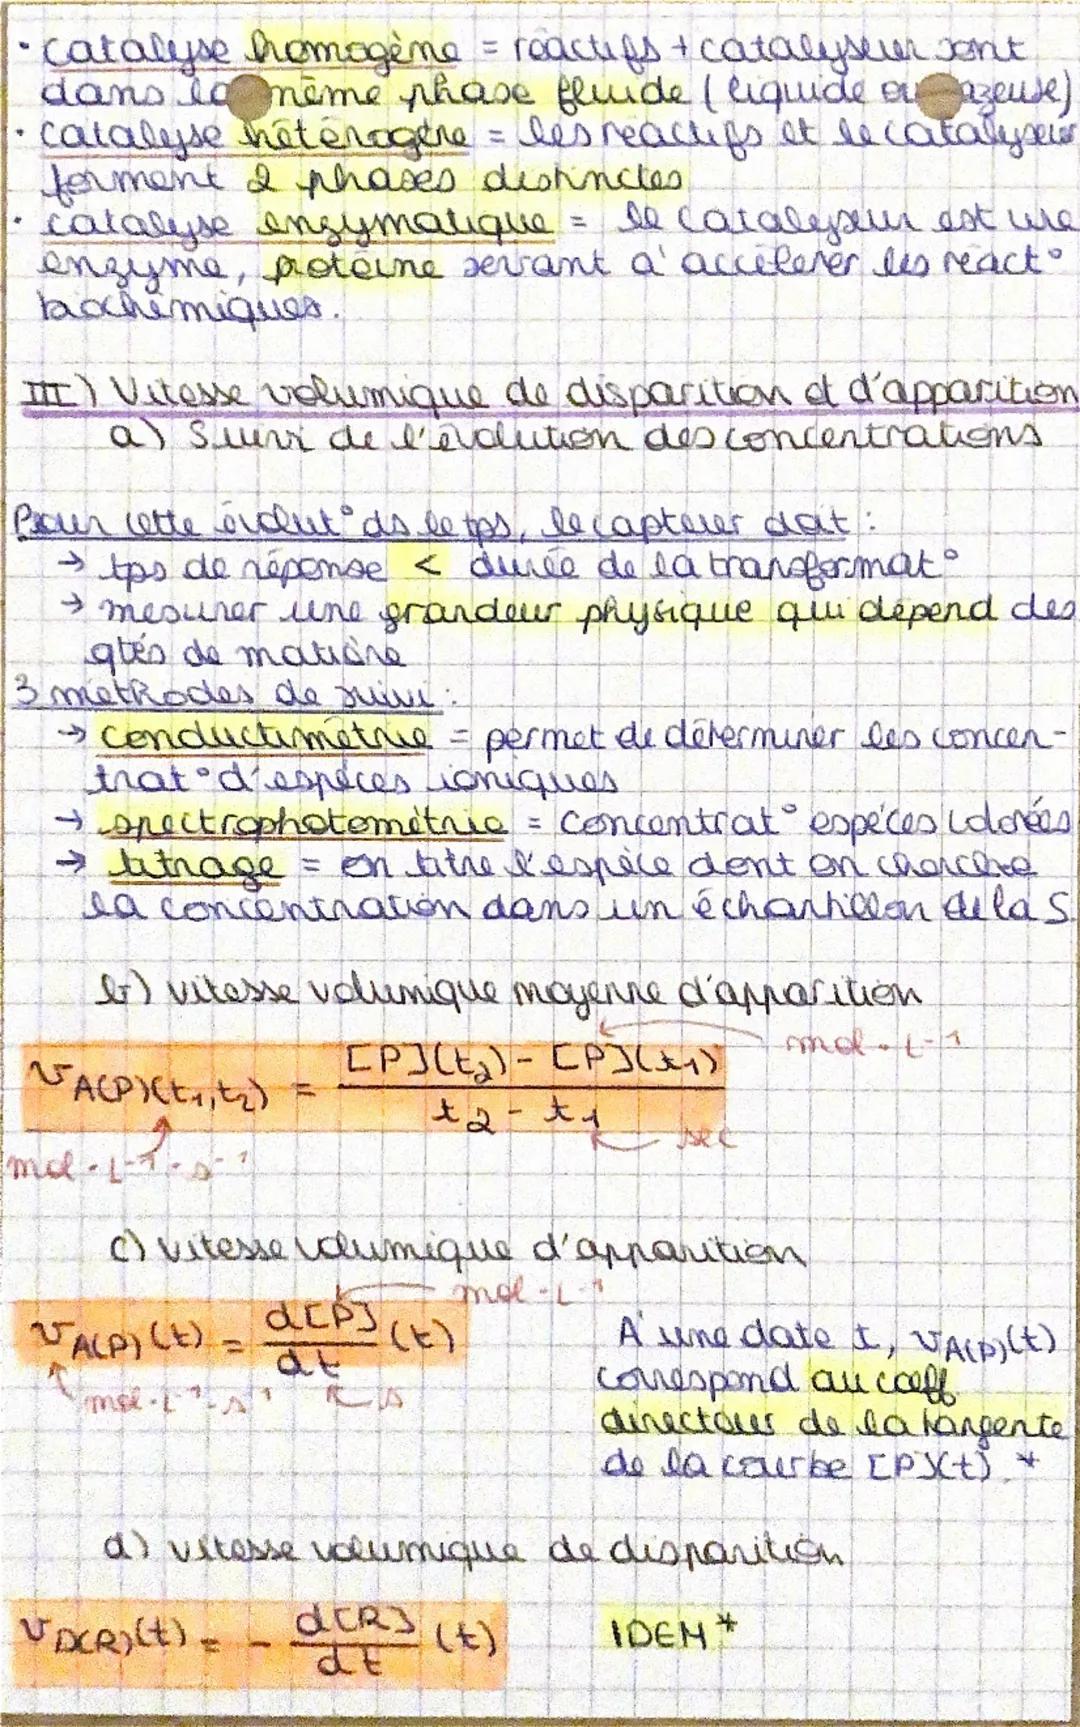 • catalyse homogène = réactifs + catalyseur sont
dans la même phase fluide (liquide ou gazeuse)
• catalyse hétérogène = les réactifs et le catalyseur
forment 2 phases distinctes
• catalyse enzymatique = le catalyseur est une
enzyme, protéine servant à accélérer les react°
biochimiques.
III) Vitesse volumique de disparition et d'apparition
a) Suivi de l'évolution des concentrations
Pour cette évolut° ds le tps, le capteur doit :
→ tps de réponse < durée de la transformat°
→ mesurer une grandeur physique qui dépend des
qtés de matière
3 méthodes de suivi :
→ conductimétrie = permet de déterminer les concen-
trat° d'espèces ioniques
→ spectrophotométrie = concentrat° espèces colorées
→ titrage = on titre l'espèce dont on cherche
la concentration dans un échantillon de la S.
b) vitesse volumique moyenne d'apparition
mol.L-1
vA(P)(t1,t2) = [P](t2) - [P](t1) / t2 - t1
sec
mol.L-1.s-1
c) vitesse volumique d'apparition
mol.L-1
vA(P)(t) = d[P]/dt (t)
mol.L-1.s-1
s
À une date t, vA(P)(t)
correspond au coeff
directeur de la tangente
de la courbe [P](t) *
d) vitesse volumique de disparition
vD(R)(t) = - d[R]/dt (t)
IDEM *